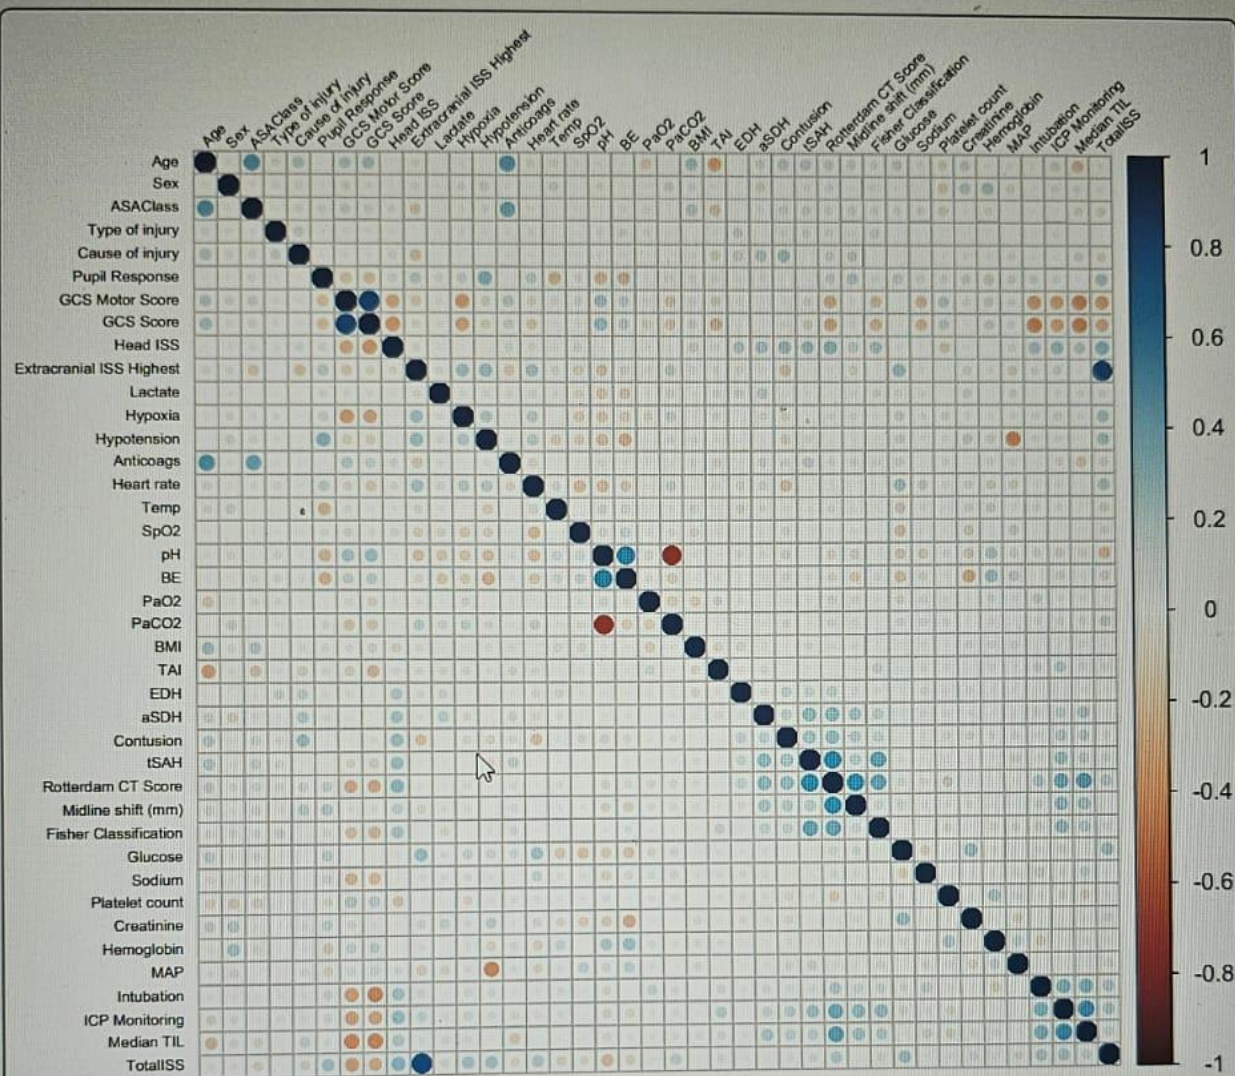 Age
Sex
ASAClass
Type of injury
Cause of injury
Pupil Response
GCS Motor Score
GCS Score
Head ISS
Extracranial ISS Highest
Lactate
Hypoxia
Hypotension
Anticoags
Heart rate
Temp
SpO2
pH
BE
PaO2
PaCO2
BMI
TAI
EDH
aSDH
Contusion
ISAH
Rotterdam CT Score
Midline shift (mm)
Fisher Classification
Glucose
Sodium
Platelet count
Creatinine
Hemoglobin
MAP
Intubation
ICP Monitoring
Median TIL
TotalISS
Age
Sex
ASAClass
Type of injury
Cause of injury
Pupil Response
GCS Motor Score
GCS Score
Head ISS
Extracranial ISS Highest
Lactate
Hypoxia
Hypotension
Anticoags
Heart rate
Temp
SpO2
pH
BE
PaO2
PaCO2
BMI
TAI
EDH
aSDH
Contusion
tSAH
Rotterdam CT Score
Midline shift (mm)
Fisher Classification
Glucose
Sodium
Platelet count
Creatinine
Hemoglobin
MAP
Intubation
ICP Monitoring
Median TIL
TotalISS
1
0.8
0.6
0.4
0.2
0
-0.2
-0.4
-0.6
-0.8
-1